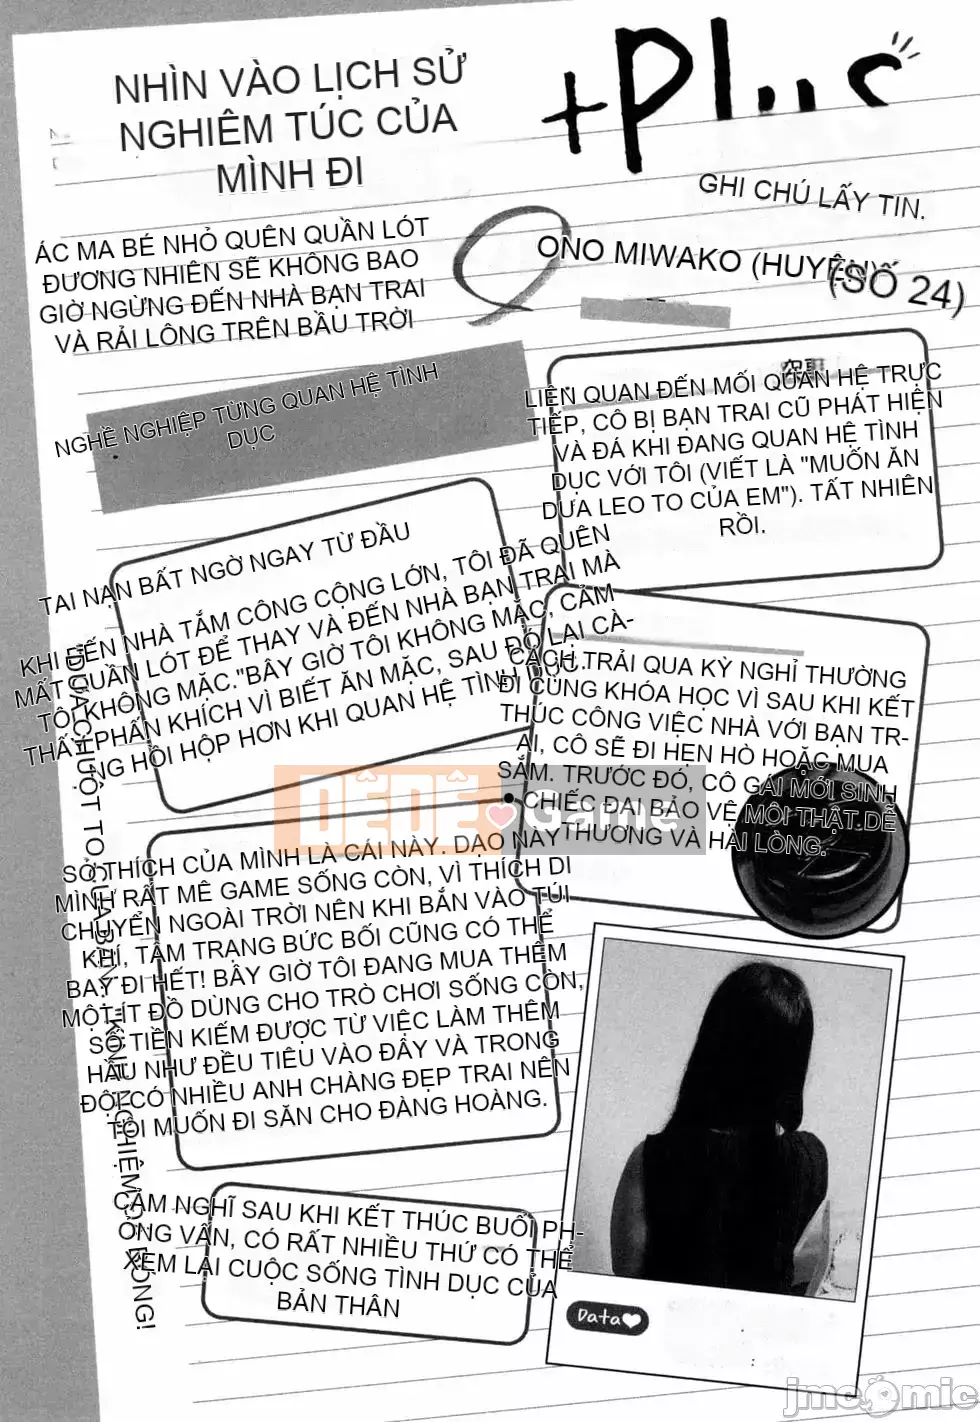 NHÌN VÀO LỊCH SỬ
NGHIÊM TÚC CỦA
MÌNH ĐI
+Plus
GHI CHÚ LẤY TIN.
ÁC MA BÉ NHỎ QUÊN QUẦN LÓT
ĐƯƠNG NHIÊN SẼ KHÔNG BAO
GIỜ NGỪNG ĐẾN NHÀ BẠN TRAI
VÀ RẢI LÔNG TRÊN BẦU TRỜI
ONO MIWAKO (HUYỆN)
(SỐ 24)
NGHỀ NGHIỆP TỪNG QUAN HỆ TÌNH
DỤC
LIÊN QUAN ĐẾN MỐI QUAN HỆ TRỰC
TIẾP, CÔ BỊ BẠN TRAI CŨ PHÁT HIỆN
VÀ ĐÁ KHI ĐANG QUAN HỆ TÌNH
DỤC VỚI TÔI (VIẾT LÀ "MUỐN ĂN
DƯA LEO TO CỦA EM"). TẤT NHIÊN
RỒI.
TAI NẠN BẤT NGỜ NGAY TỪ ĐẦU
KHI ĐẾN NHÀ TẮM CÔNG CỘNG LỚN, TÔI ĐÃ QUÊN
MẤT QUẦN LÓT ĐỂ THAY VÀ ĐẾN NHÀ BẠN TRAI MÀ
TÔI KHÔNG MẶC."BÂY GIỜ TÔI KHÔNG MẶC, CẢM
THẤY PHẤN KHÍCH VÌ BIẾT ĂN MẶC, SAU ĐÓ LẠI CÀ-
NG HỒI HỘP HƠN KHI QUAN HỆ TÌNH DỤC.
CÁCH TRẢI QUA KỲ NGHỈ THƯỜNG
ĐI CÙNG KHÓA HỌC VÌ SAU KHI KẾT
THÚC CÔNG VIỆC NHÀ VỚI BẠN TR-
AI, CÔ SẼ ĐI HẸN HÒ HOẶC MUA
SẮM. TRƯỚC ĐÓ, CÔ GÁI MỚI SINH
CHIẾC ĐAI BẢO VỆ MÔI THẬT DỄ
THƯƠNG VÀ HÀI LÒNG.
DÊDÊ Game
SỞ THÍCH CỦA MÌNH LÀ CÁI NÀY. DẠO NAY
MÌNH RẤT MÊ GAME SỐNG CÒN, VÌ THÍCH DI
CHUYỂN NGOÀI TRỜI NÊN KHI BẮN VÀO TÚI
KHÍ, TÂM TRẠNG BỨC BỐI CŨNG CÓ THỂ
BAY ĐI HẾT! BÂY GIỜ TÔI ĐANG MUA THÊM
MỘT ÍT ĐỒ DÙNG CHO TRÒ CHƠI SỐNG CÒN,
SỐ TIỀN KIẾM ĐƯỢC TỪ VIỆC LÀM THÊM
HẦU NHƯ ĐỀU TIÊU VÀO ĐÂY VÀ TRONG
ĐỘI CÓ NHIỀU ANH CHÀNG ĐẸP TRAI NÊN
TÔI MUỐN ĐI SĂN CHO ĐÀNG HOÀNG.
CẢM NGHĨ SAU KHI KẾT THÚC BUỔI PH-
ỎNG VẤN, CÓ RẤT NHIỀU THỨ CÓ THỂ
XEM LẠI CUỘC SỐNG TÌNH DỤC CỦA
BẢN THÂN
Data
jmcomic